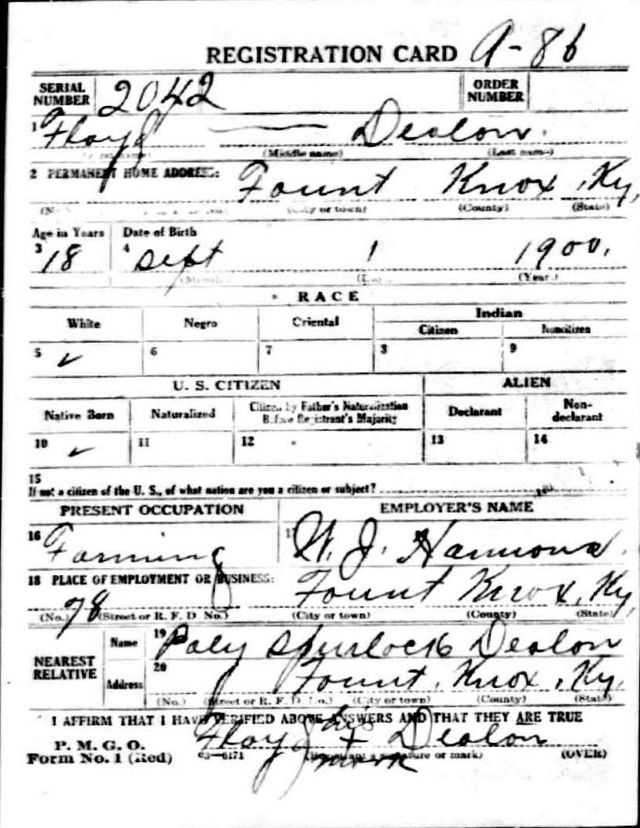 REGISTRATION CARD A-86
SERIAL NUMBER 2042 ORDER NUMBER
1 Floyd — Dealon.
(Middle name) (Last name)
2 PERMANENT HOME ADDRESS: Fount Knox, Ky,
(No.) (City or town) (County) (State)
Age in Years Date of Birth
3 18 4 Sept 1 1900.
(Month) (Year.)
RACE
White Negro Oriental Indian
Citizen Noncitizen
5 ✓ 6 7 8 9
U. S. CITIZEN ALIEN
Native Born Naturalized Citizen by Father's Naturalization Before Registrant's Majority Declarant Non-declarant
10 ✓ 11 12 13 14
15
If not a citizen of the U. S., of what nation are you a citizen or subject?
PRESENT OCCUPATION EMPLOYER'S NAME
16 Farming 17 W. J. Hammons.
18 PLACE OF EMPLOYMENT OR BUSINESS: Fount Knox, Ky,
(No.) 78 (Street or R. F. D. No.) (City or town) (County) (State)
NEAREST RELATIVE Name 19 Poly Spurlock Dealon
Address 20 Fount, Knox, Ky.
(No.) (Street or R. F. D. No.) (City or town) (County) (State)
I AFFIRM THAT I HAVE VERIFIED ABOVE ANSWERS AND THAT THEY ARE TRUE
P. M. G. O.
Form No. 1 (Red) 03—6171 Floyd his + mark Dealon
(Registrant's signature or mark) (OVER)